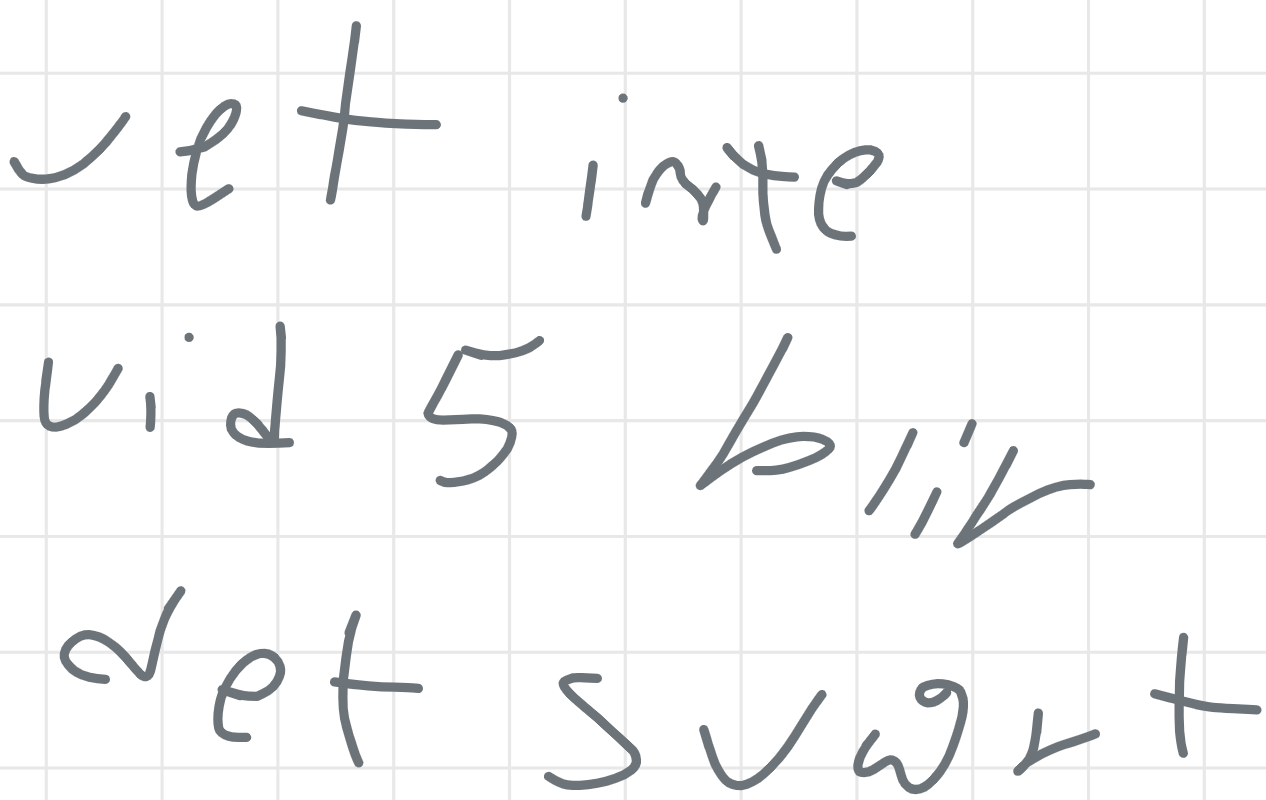 vet inte
vid 5 blir
det svårt